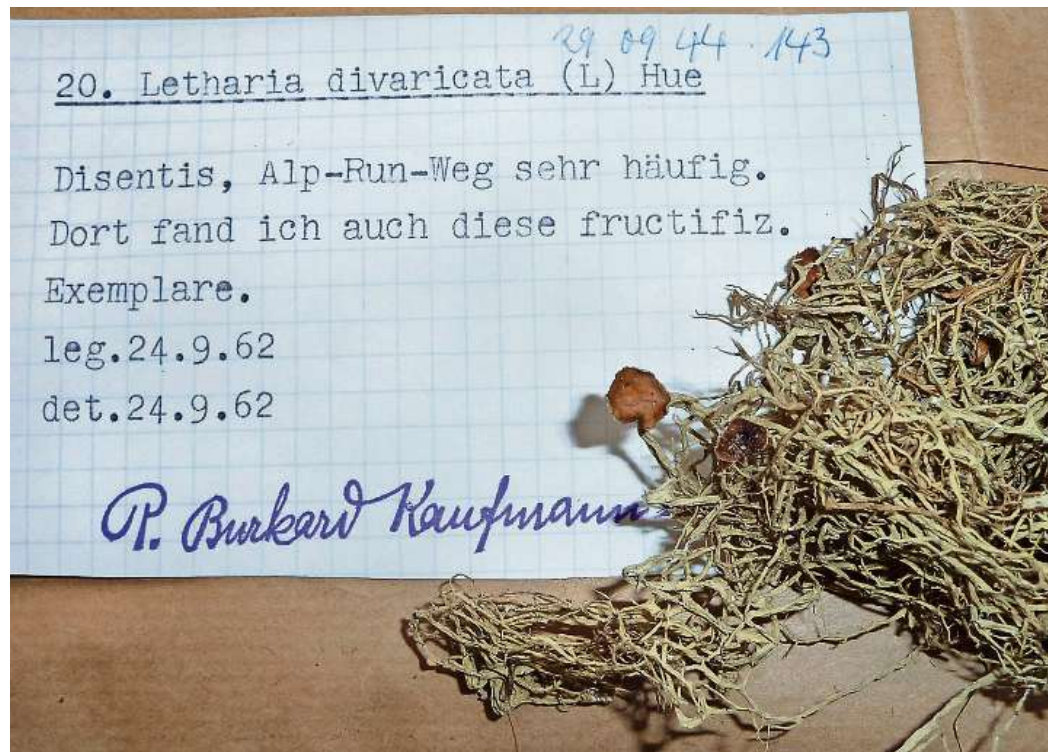 29 09 44 · 143
20. Letharia divaricata (L) Hue
Disentis, Alp-Run-Weg sehr häufig.
Dort fand ich auch diese fructifiz.
Exemplare.
leg.24.9.62
det.24.9.62
P. Burkard Kaufmann